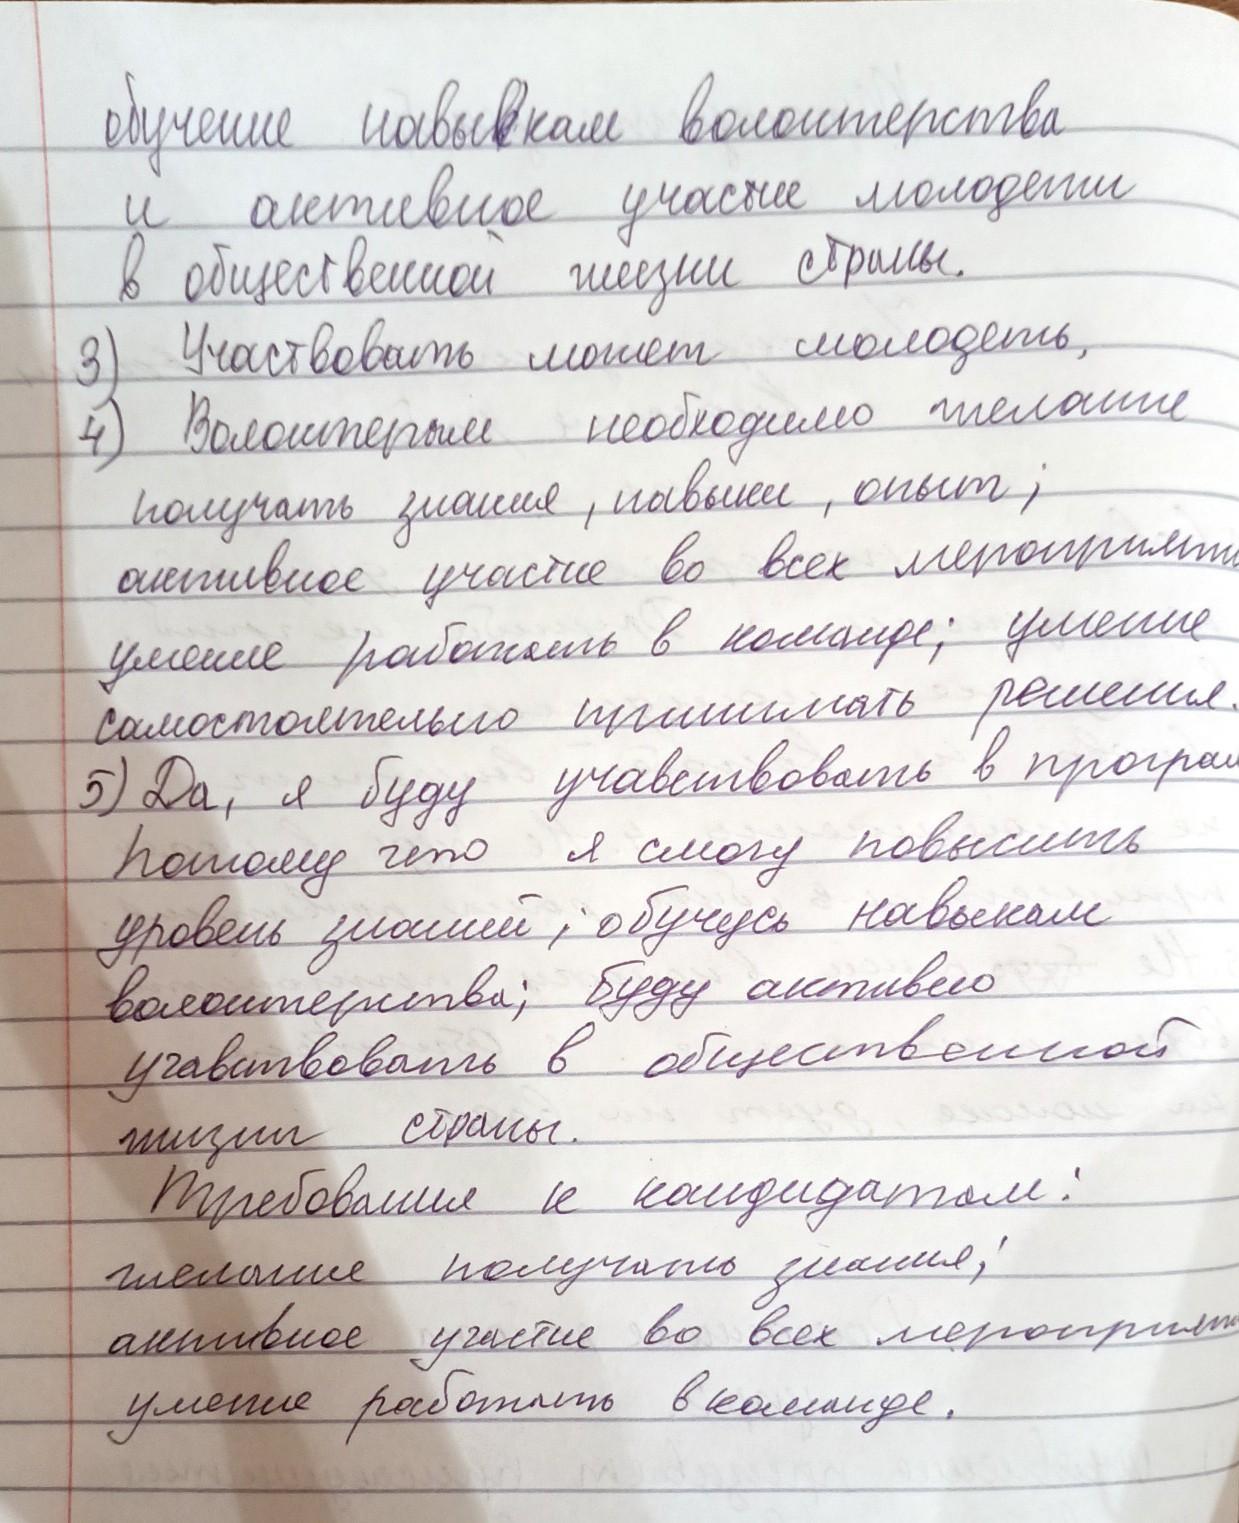 обучение навыкам волонтерства
и активное участие молодежи
в общественной жизни страны.
3) Участвовать может молодежь,
4) Волонтерам необходимо желание
получать знания, навыки, опыт;
активное участие во всех мероприяти
умение работать в команде; умение
самостоятельно принимать решения.
5) Да, я буду учавствовать в програм
Потому что я смогу повысить
уровень знаний; обучусь навыкам
волонтерства; буду активно
учавствовать в общественной
жизни страны.
Требования к кандидатам:
желание получать знания;
активное участие во всех мероприяти
умение работать в команде.